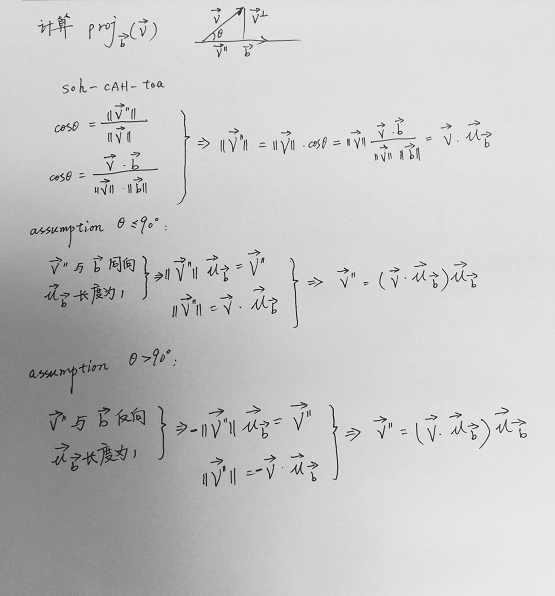 计算 proj_{\vec{b}}(\vec{v})
\vec{v} \vec{v}^{⊥} θ \vec{v}^{"} \vec{b}
soh-CAH-toa
cosθ = \frac{‖\vec{v}^{"}‖}{‖\vec{v}‖}
cosθ = \frac{\vec{v}·\vec{b}}{‖\vec{v}‖·‖\vec{b}‖}
} ⇒ ‖\vec{v}^{"}‖ = ‖\vec{v}‖·cosθ = ‖\vec{v}‖ \frac{\vec{v}·\vec{b}}{‖\vec{v}‖ ‖\vec{b}‖} = \vec{v}·\vec{u}_{\vec{b}}
assumption θ≤90°:
\vec{v}^{"} 与 \vec{b} 同向
\vec{u}_{\vec{b}} 长度为1
} ⇒ ‖\vec{v}^{"}‖ \vec{u}_{\vec{b}} = \vec{v}^{"}
‖\vec{v}^{"}‖ = \vec{v}·\vec{u}_{\vec{b}}
} ⇒ \vec{v}^{"} = (\vec{v}·\vec{u}_{\vec{b}})\vec{u}_{\vec{b}}
assumption θ>90°:
\vec{v}^{"} 与 \vec{b} 反向
\vec{u}_{\vec{b}} 长度为1
} ⇒ -‖\vec{v}^{"}‖ \vec{u}_{\vec{b}} = \vec{v}^{"}
‖\vec{v}^{"}‖ = -\vec{v}·\vec{u}_{\vec{b}}
} ⇒ \vec{v}^{"} = (\vec{v}·\vec{u}_{\vec{b}})\vec{u}_{\vec{b}}